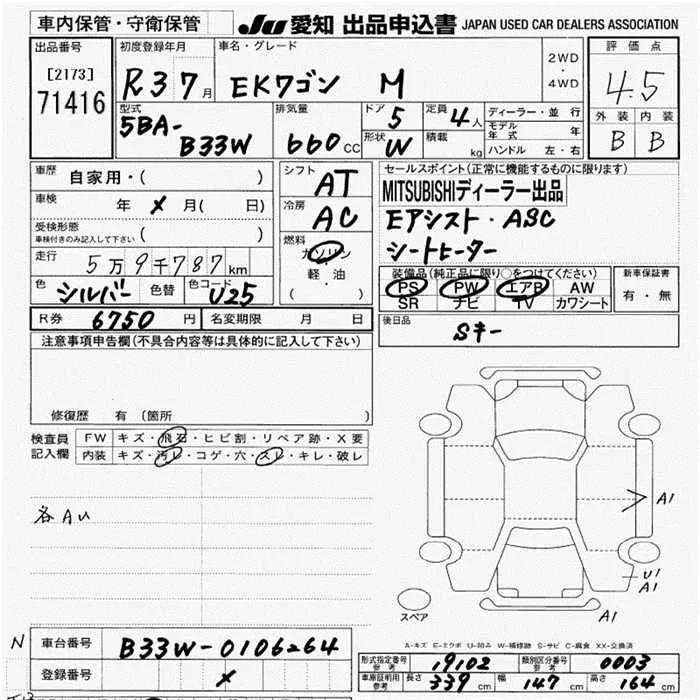 車内保管・守衛保管 JU 愛知 出品申込書 JAPAN USED CAR DEALERS ASSOCIATION
出品番号 初度登録年月 車名・グレード 2WD・4WD 評価点
[2173] 71416 R3 7月 EKワゴン M 4.5
型式 排気量 ドア 5 定員 4人 ディーラー・並行 外装 内装
5BA-B33W 660cc 形状 W 積載 kg モデル年式 年 B B
ハンドル 左・右
車歴 自家用・( ) シフト AT セールスポイント(正常に機能するものに限ります)
車検 年 メ 月( 日) 冷房 AC MITSUBISHIディーラー出品
受検形態 車検付きのみ記入して下さい ( ) Eアシスト・ASC
燃料 ガソリン 軽・油 ( ) シートヒーター
走行 5万9千787km 装備品(純正品に限り○をつけてください) 新車保証書
色 シルバー 色替 色コード U25 PS PW エアB AW 有・無
SR ナビ TV カワシート
R券 6750 円 名変期限 月 日 後日品
Sキー
注意事項申告欄(不具合内容等は具体的に記入して下さい)
修復歴 有 (箇所
検査員記入欄 FW キズ・飛石・ヒビ割・リペア跡・X要
内装 キズ・汚レ・コゲ・穴・スレ・キレ・破レ
各AU
A1
U1
A1
A1
スペア
A-キズ E-エクボ U-凹み W-補修跡 S-サビ C-腐食 XX-交換済
N 車台番号 B33W-0106264
登録番号 メ
形式指定番号 参考 19102 類別区分番号 参考 0003
車庫証明用 参考 長さ 339 cm 幅 147 cm 高さ 164 cm